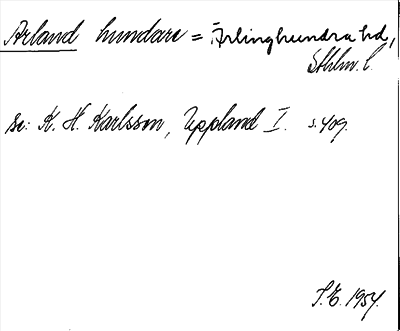 Arland hundare = Ärlinghundra hd,
Sthlm. l.
se: K. H. Karlsson, Uppland I. s. 409.
T. E. 1954.